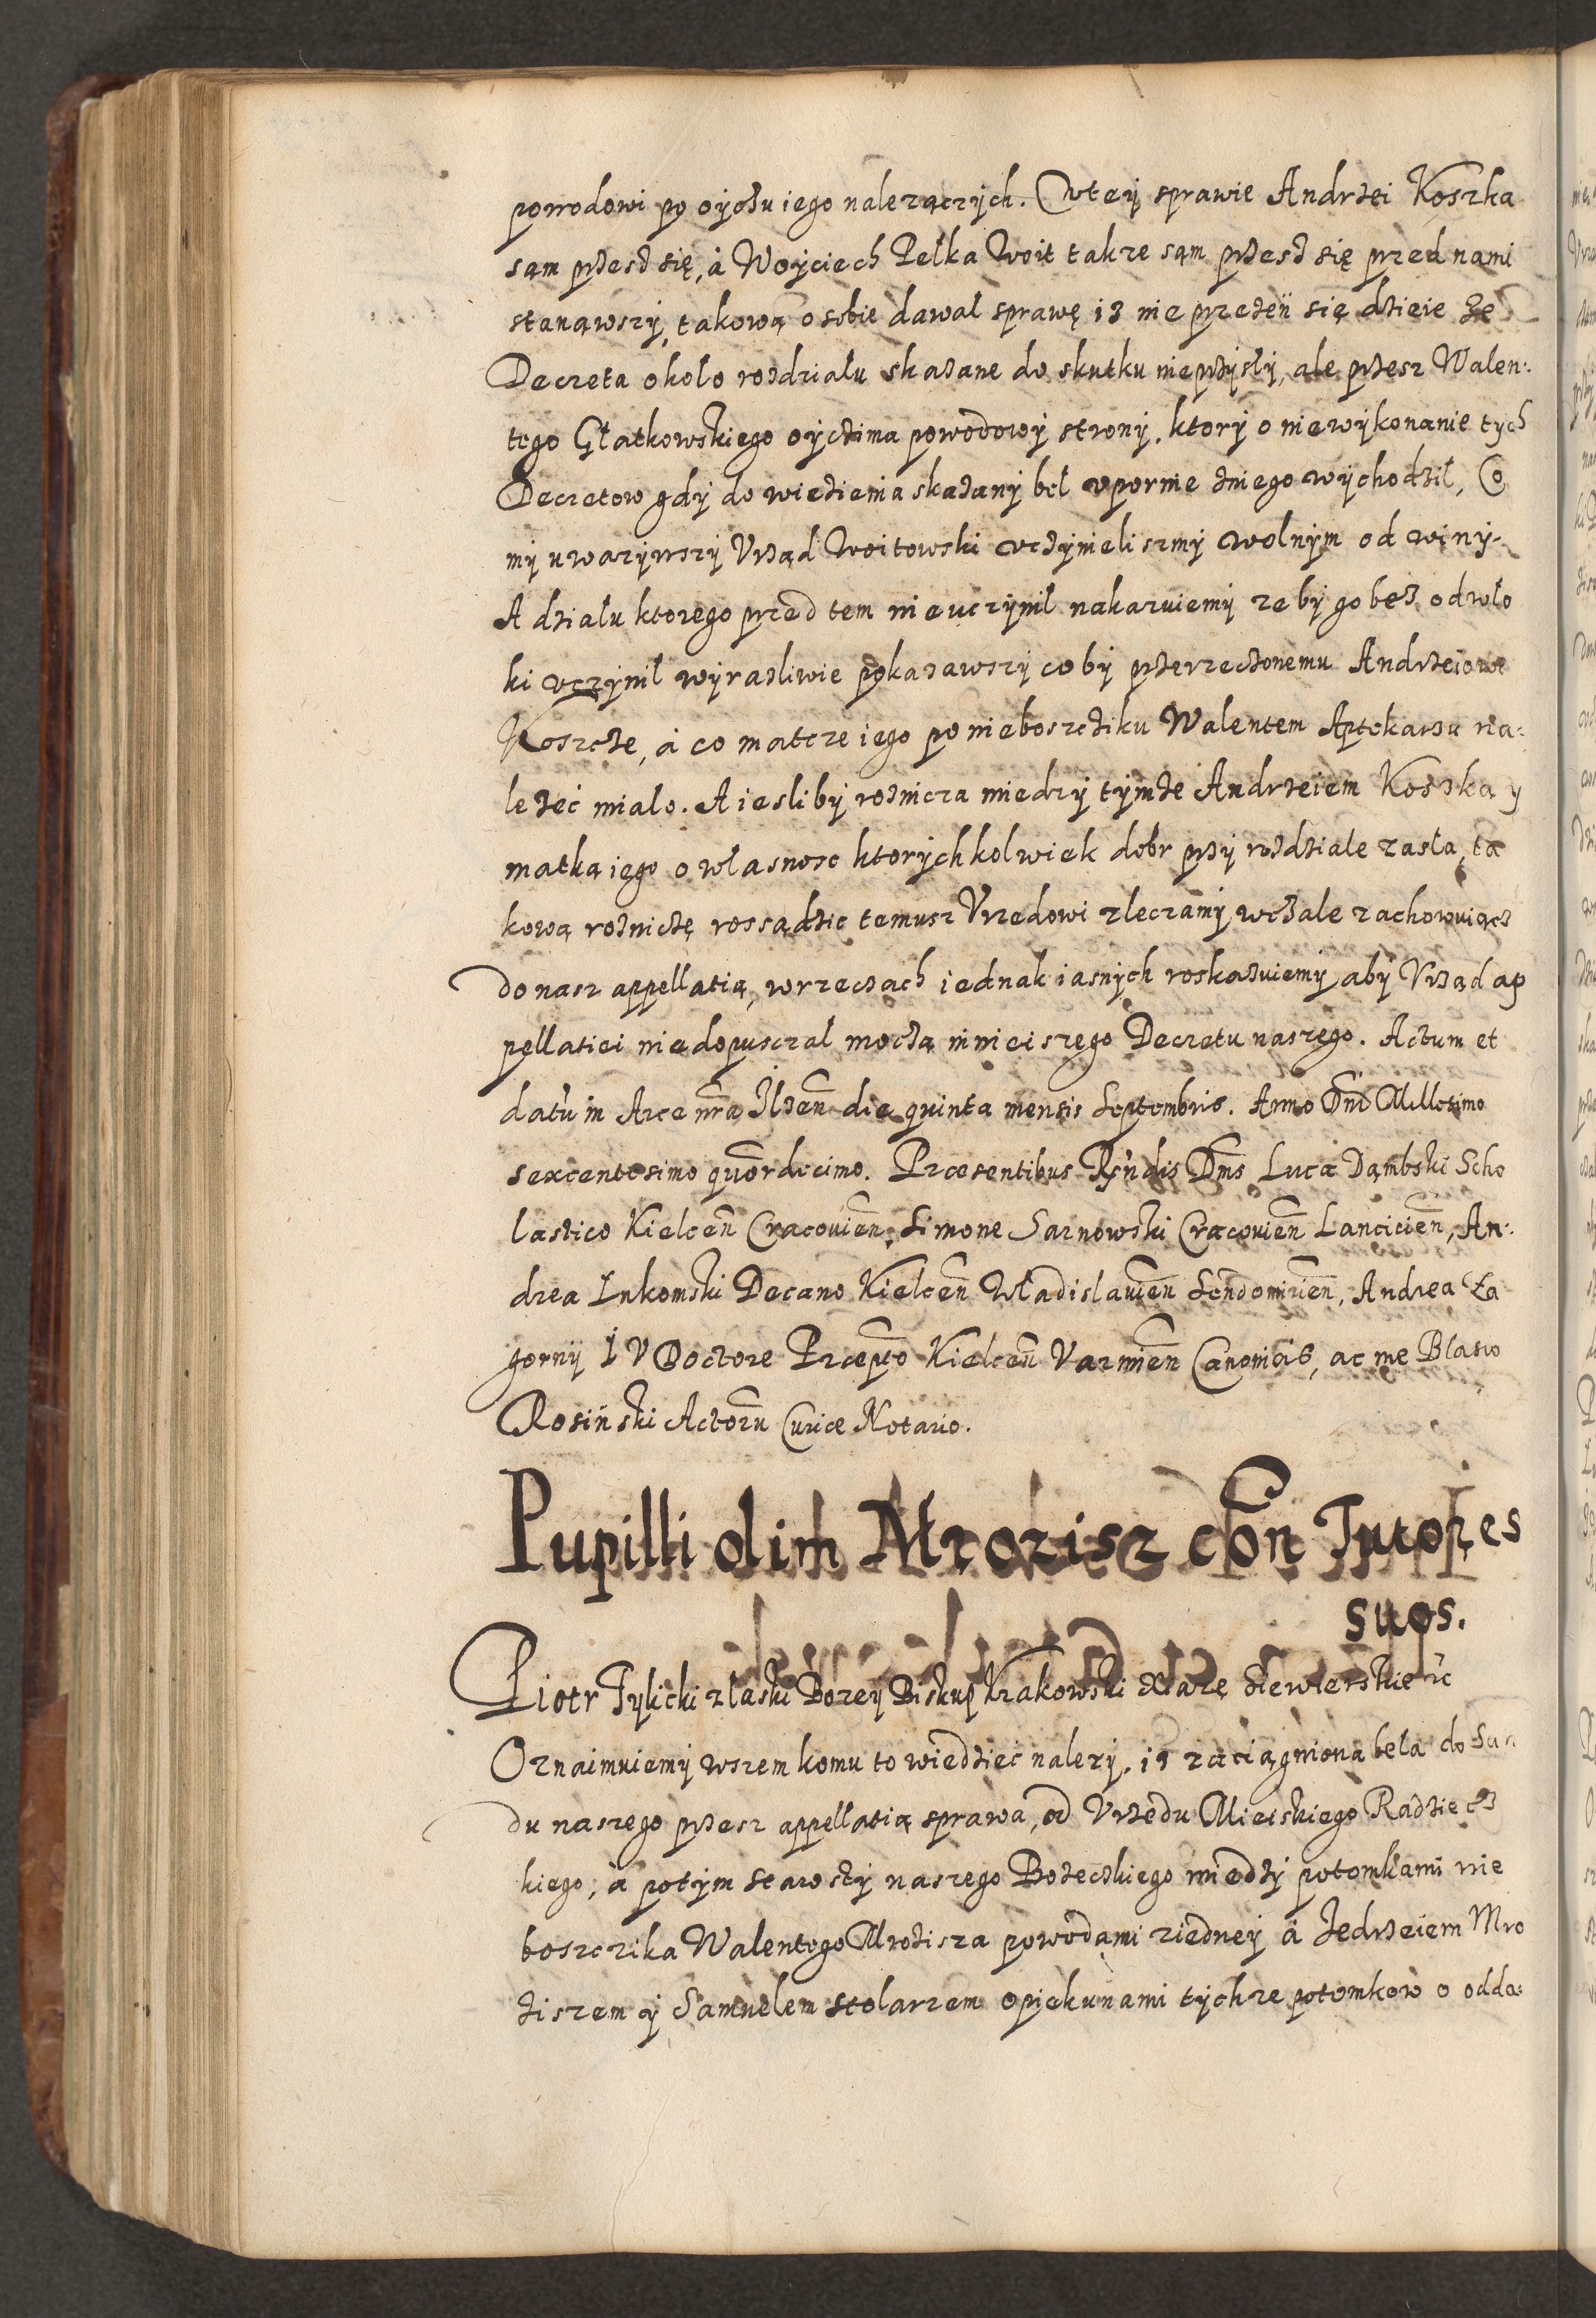 powodowi po oyczu iego nalezączych. W tey sprawie Andrzei Koszka
sąm przesz się, à Woyciech Pełka Woit takze sąm przesz się przed nami
stanąwszy, takową o sobie dawal sprawę iz nie przezeń się dzieie ze
Decreta okolo rozdzialu skazane do skutku nieprzyszły, ale przesz Walen:
tego Głatkowskiego oyczima powodowy strony, ktory o niewykonanie tych
Decretow gdy do więzienia skazany bel vpornie zniego wychodzil, Co
my uwazywszy Vrząd Woitowski vczynieliszmy wolnym od winy.
A dzialu ktorego przed tem nieuczynil nakazuiemy ze by go bez odwło
ki vczynil wyrazliwie pokazawszy co by przerzeczonemu Andrzeiowi
Koszcze, à co matcze iego po nieboszcziku Walentem Aptekarzu na:
lezeć mialo. A iesli by roznicza miedzy tymze Andrzeiem Koszką y
matką iego o własnosc ktorychkolwiek dobr przy rozdziale zasła, ta
kową rozniczę rossądzic temusz Vrzedowi zleczamy, wczale zachowuiącz
do nasz appellatią, w rzeczach iednak iasnych roskazuiemy aby Vrząd ap
pellatiei niedopusczal moczą ninieiszego Decretu naszego. Actum et
datũ in Arce nrã Ilzeñ die quinta mensis Septembris. Anno Dñi Millesimo
sexcentesimo quõrdecimo. Præsentibus Rñdis Dñis Luca Dąmbski Scho
lastico Kielceñ Cracovieñ, Simone Sarnowski Cracovieñ Lancicieñ, An:
drea Lukomski Decano Kielceñ Władislavieñ Sendomirieñ, Andrea Za
gorny I V Doctore Præpto Kielceñ Varmieñ Canonicis, ac me Blasio
Rosiński Actorũ Curiæ Notario.
Pupilli olim Mrozisz cõn Tutores
suos.
Piotr Tylicki z łaski Bozey Biskup Krakowski Xiąze Siewierskie ic̃
Oznaimuiemy wszem komu to wiedzieć nalezy, iz zaciągniona beła do Sąn
du naszego przesz appellatią sprawa, od Vrzedu Mieiskiego Radziecz
kiego, à potym starosty naszego Bozeczkiego miedzy potomkami nie
boszczika Walentego Mrozisza powodami ziedney à Jedrzeiem Mro
ziszem y Samuelem stolarzem opiekunami tychze potomkow o odda: